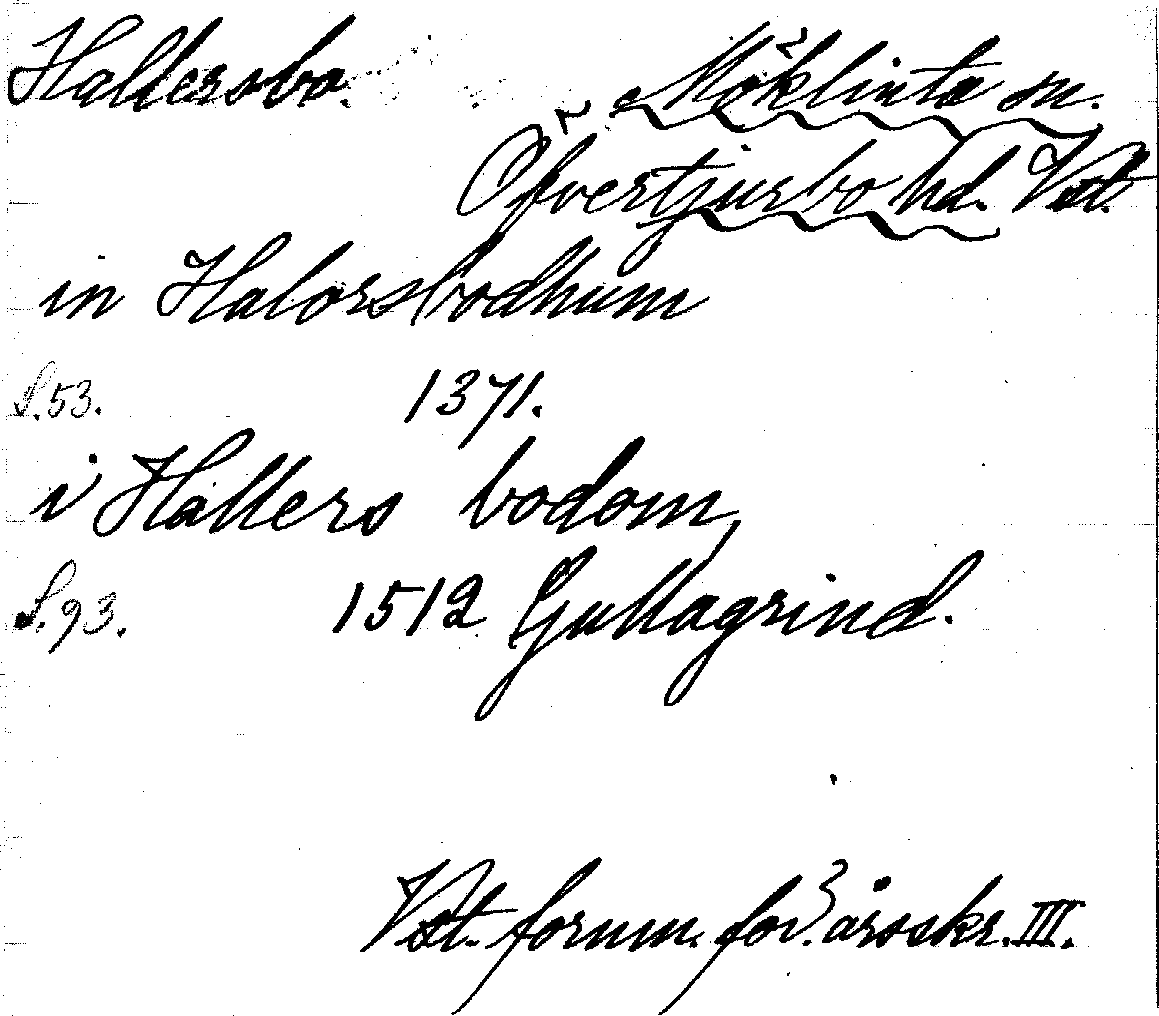 Hallersbo. Möklinta sn.
Öfvertjurbo hd. Vstl.
in Halorsbodhum
S.53. 1371.
i Hallers bodom,
S.93. 1512 Gullagrind.
Vstl. fornm. för:s årsskr. III.